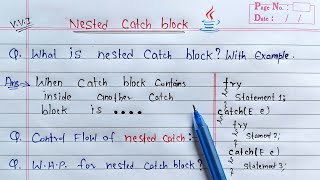 V.V.I
Nested Catch block
Page No.:
Date: / /
Q. What is nested Catch block? With Example.
Ans→ When Catch block Contains
inside another Catch
block is ....
Q. Control Flow of nested catch:-
Q. W.A.P. for nested catch block?
try
{
Statement 1;
}
catch(E e)
{
try
{
Stamnt 2;
}
catch(E e)
{
Stamnt 3;